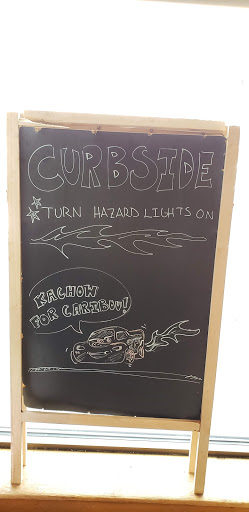 CURBSIDE
TURN HAZARD LIGHTS ON
KACHOW
FOR CARIBOU!